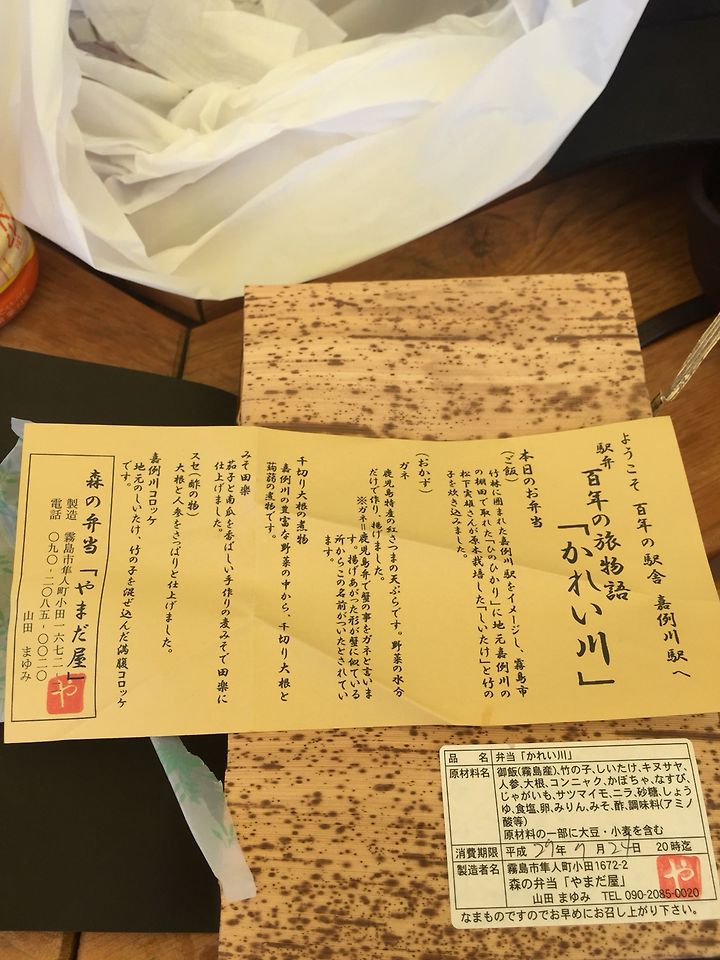 ようこそ 百年の駅舎 嘉例川駅へ
駅弁 百年の旅物語
「かれい川」
本日のお弁当
(ご飯)
竹林に囲まれた嘉例川駅をイメージし、霧島市
の棚田で取れた「ひのひかり」に地元嘉例川の
松下実雄さんが原木栽培した「しいたけ」と竹の
子を炊き込みました。
(おかず)
ガネ
鹿児島特産の紅さつまの天ぷらです。野菜の水分
だけで作り、揚げました。
※ガネ=鹿児島弁で蟹の事をガネと言いま
す。揚げあがった形が蟹に似ている
所からこの名前がついたとされてい
ます。
千切り大根の煮物
嘉例川の豊富な野菜の中から、千切り大根と
蒟蒻の煮物です。
みそ田楽
茄子と南瓜を香ばしい手作りの麦みそで田楽に
仕上げました。
スセ(酢の物)
大根と人参をさっぱりと仕上げました。
嘉例川コロッケ
地元のしいたけ、竹の子を混ぜ込んだ満腹コロッケ
です。
森の弁当「やまだ屋」
製造 霧島市隼人町小田一六七二-
電話 〇九〇-二〇八五-〇〇二〇
山田 まゆみ
や
品 名 弁当「かれい川」
原材料名 御飯(霧島産)、竹の子、しいたけ、キヌサヤ、
人参、大根、コンニャク、かぼちゃ、なすび、
じゃがいも、サツマイモ、ニラ、砂糖、しょう
ゆ、食塩、卵、みりん、みそ、酢、調味料(アミノ
酸等)
原材料の一部に大豆・小麦を含む
消費期限 平成 27年 7月 24日 20時迄
製造者名 霧島市隼人町小田1672-2
森の弁当「やまだ屋」
山田 まゆみ TEL 090-2085-0020
や
なまものですのでお早めにお召し上がり下さい。